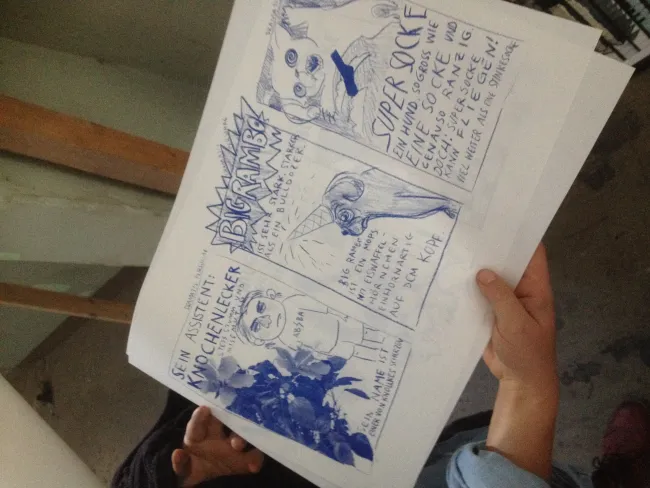 SUPER SOCKE
EIN HUND SO GROSS WIE
EINE SOCKE UND
GENAUSO RANZIG.
DOCH: SUPER SOCKE
KANN FLIEGEN!
VIEL WEITER ALS EINE
BIG RAMBO
IST SEHR STARK. STÄRKER
ALS EIN BULLDOZER.
BIG RAMBO
IST EIN MOPS
MIT EISWAFFEL-
HÖRNCHEN
EINHORNARTIG
AUF DEM KOPF.
SEIN ASSISTENT:
KNOCHENLECKER
ABBA
SEIN NAME IST